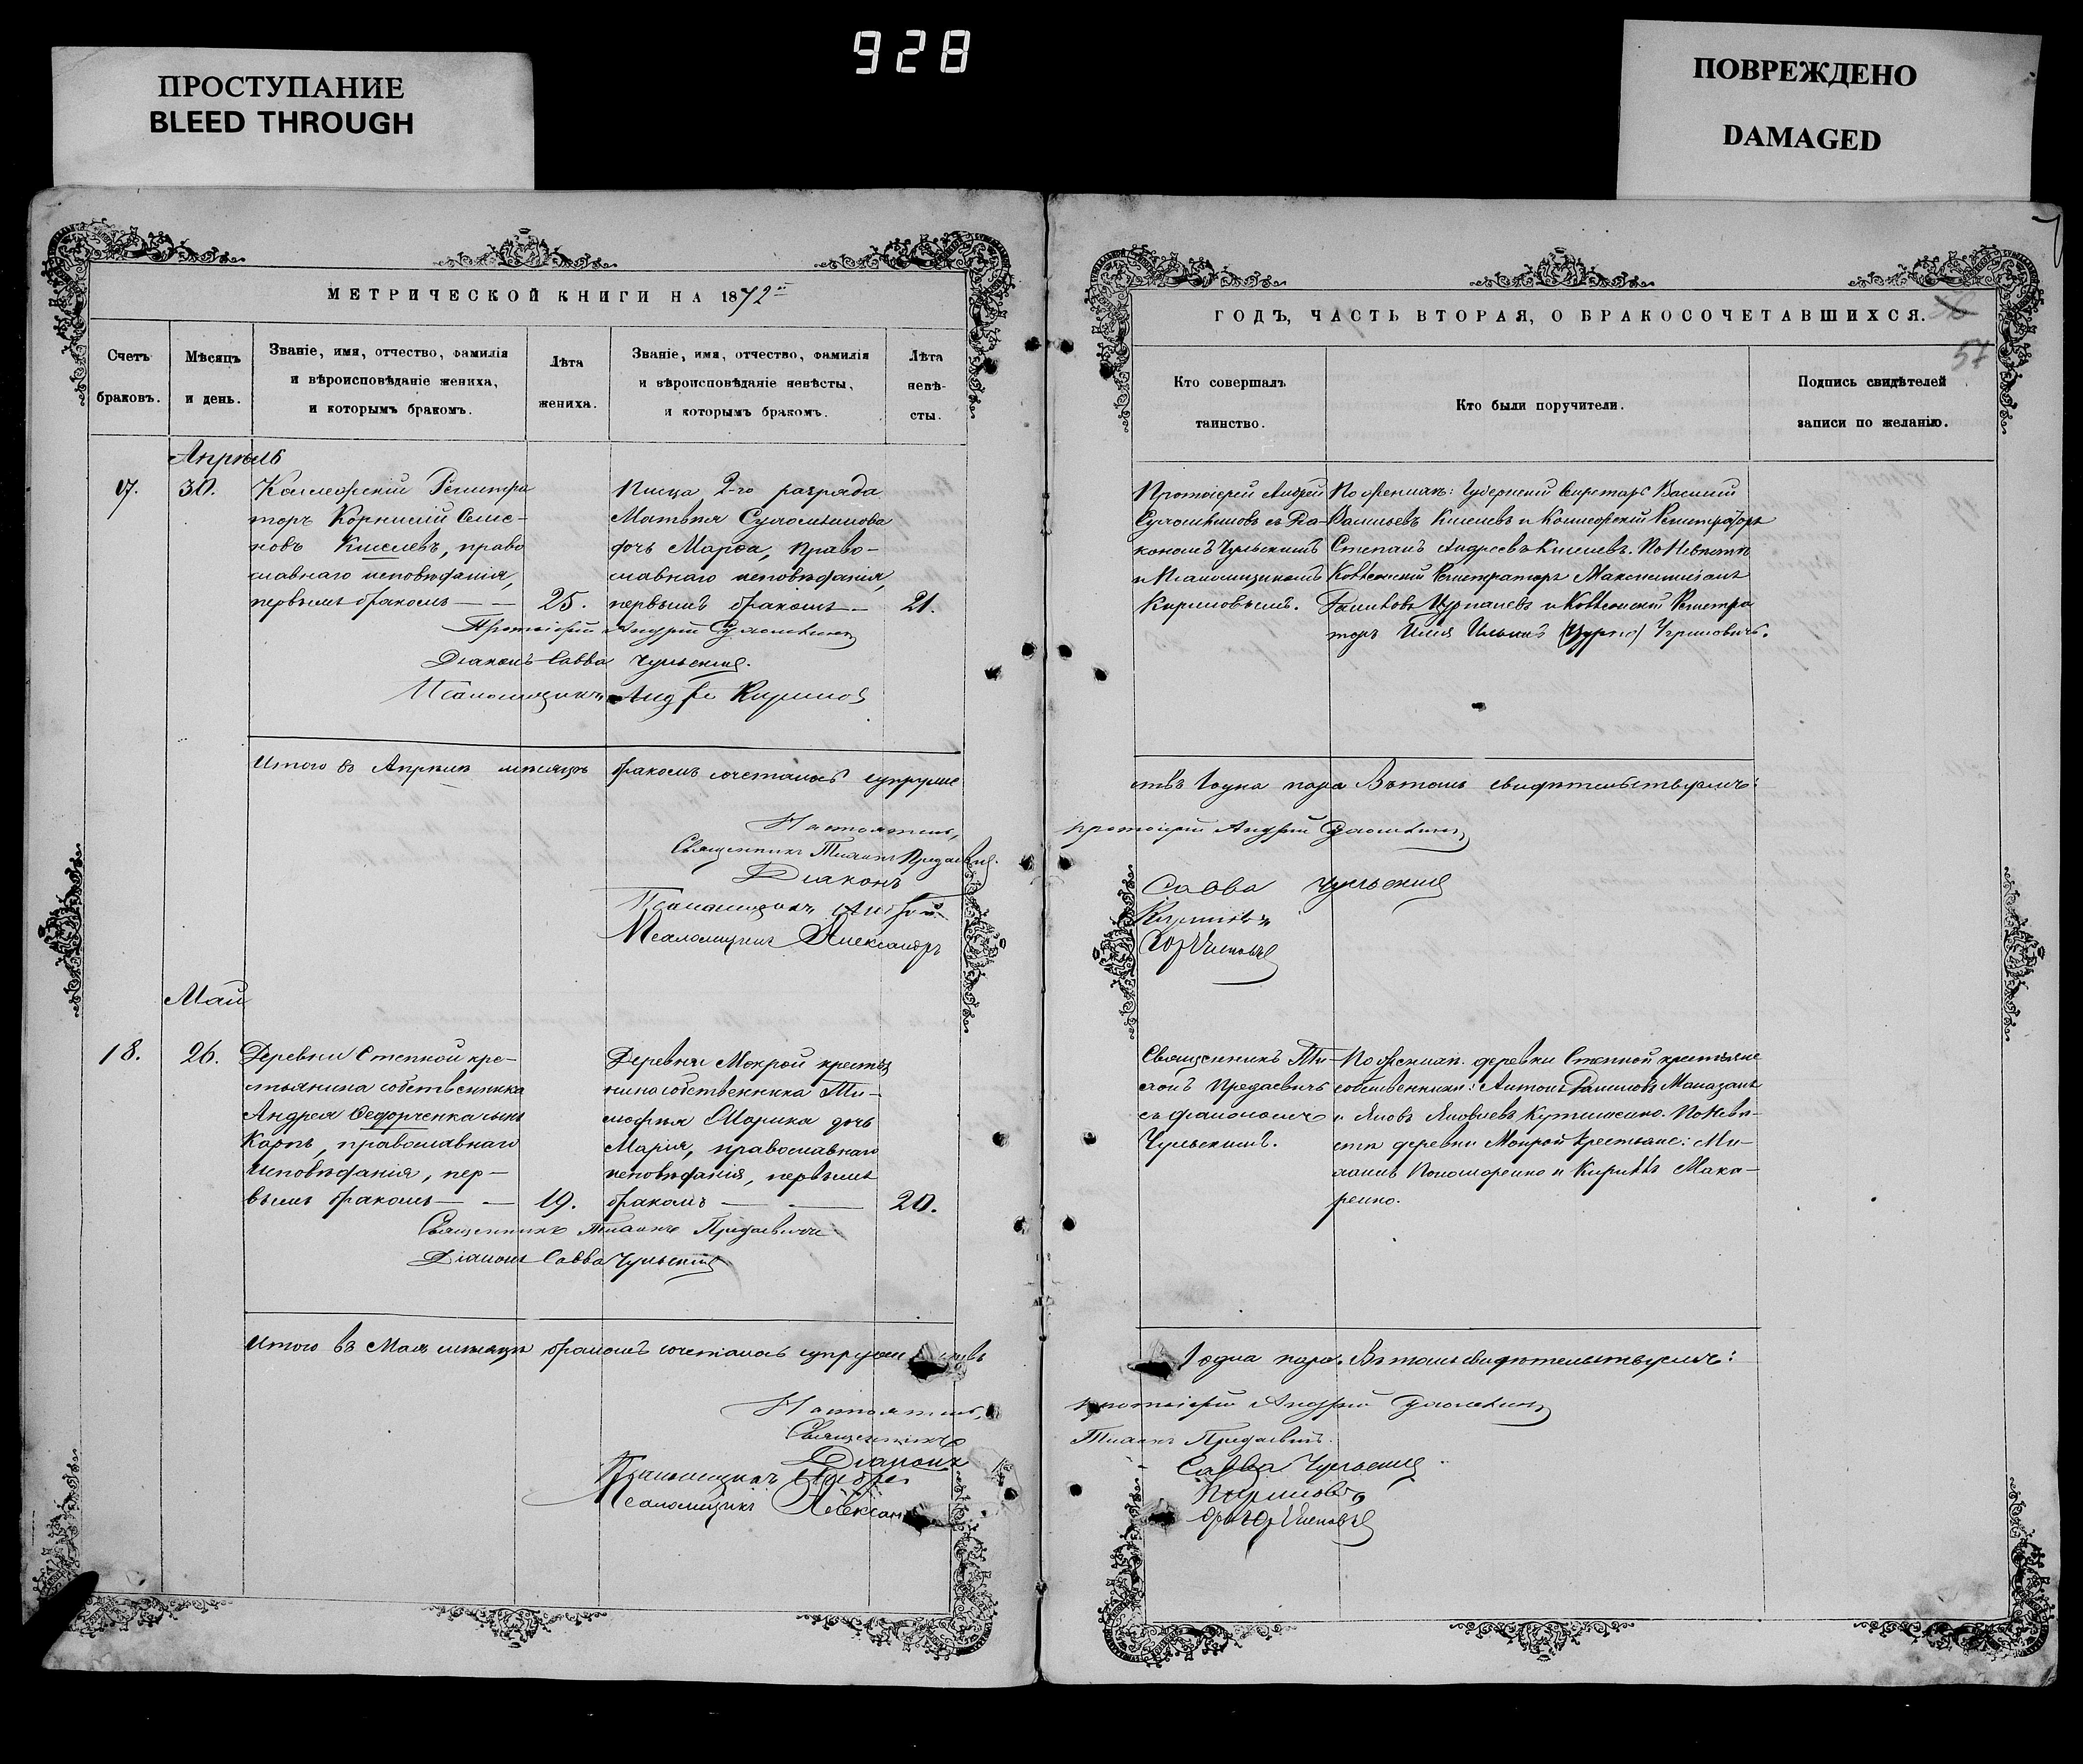 928
ПРОСТУПАНИЕ
BLEED THROUGH
ПОВРЕЖДЕНО
DAMAGED
МЕТРИЧЕСКОЙ КНИГИ НА 1872
Счетъ браковъ.
Мѣсяцъ и день.
Званіе, имя, отчество, фамилія
и вѣроисповѣданіе жениха,
и которымъ бракомъ.
Лѣта
жениха.
Званіе, имя, отчество, фамилія
и вѣроисповѣданіе невѣсты,
и которымъ бракомъ.
Лѣта
невѣ-
сты.
Апрѣль
17.
30.
Коллежскій Регистра
торъ Корнилій Семе-
новъ Киселевъ, право
славнаго исповѣданія,
первымъ бракомъ
25.
Писца 2-го разряда
Матвѣя
дочь Марѳа, право-
славнаго исповѣданія,
первымъ бракомъ
21.
Протоіерей Андрей
Діаконъ Савва Чульскій.
Псаломщикъ
Итого въ Апрѣлѣ мѣсяцѣ бракомъ сочеталось супруже
Настоятель,
Священникъ
Діаконъ
Псаломщикъ Андрей
Псаломщикъ Александръ
Май
18.
26.
Деревни Степной кре-
стьянина собственника
Андрея Ѳедорченка сынъ
Карпъ, православнаго
исповѣданія, пер-
вымъ бракомъ
19.
Деревни Мокрой крестья
нина собственника Ти-
моѳея дочь
Марія, православнаго
исповѣданія, первымъ
бракомъ
20.
Священникъ
Діаконъ Савва Чульскій
Итого въ Маѣ мѣсяцѣ бракомъ сочеталось супруже ствъ
Настоятель,
Священникъ
Діаконъ
Псаломщикъ Андрей
Псаломщикъ
ГОДЪ, ЧАСТЬ ВТОРАЯ, О БРАКОСОЧЕТАВШИХСЯ.
57
Кто совершалъ
таинство.
Кто были поручители.
Подпись свидѣтелей
записи по желанію.
Протоіерей Андрей
съ Діа-
кономъ Чульскимъ
и Псаломщикомъ
Кириловымъ.
По женихѣ: Губернскій Секретарь Василій
Васильевъ Киселевъ и Коллежскій Регистраторъ
Степанъ Андреевъ Киселевъ. По Невѣстѣ
Регистраторъ Максимиліанъ
и Регистра
торъ
ствъ 1 одна пара Въ томъ свидѣтельствуемъ:
протоіерей Андрей
Савва Чульскій
Кириловъ
Священникъ
съ діакономъ
Чульскимъ.
По женихѣ деревни Степной крестьяне
собственники: Антонъ
и Яковъ Яковлевъ По Невѣ-
стѣ деревни Мокрой крестьяне: Ми-
Пономаренко и Кириллъ Мака-
ренко.
1 одна пара. Въ томъ свидѣтельствуемъ:
протоіерей Андрей
Савва Чульскій
Кириловъ